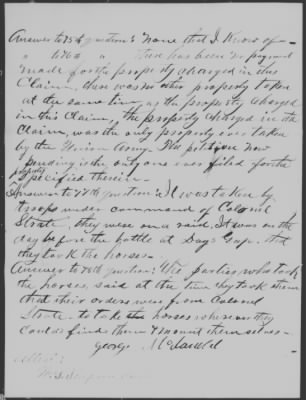 Answer to 75th question: None that I know of—
" to 76th " there has been no payment
made for the property charged in this
Claim, there was no other property taken
at the same time as the property charged
in this Claim, the property charged in the
Claim, was the only property ever taken
by the Union Army. The petition now
pending is the only one ever filed for the
property
Specified therein—
Answer to 77th question: It was taken by
troops under command of Colonel
Strate, they were on a raid, It was on the
day before the battle at Day's Gap, that
they took the horses—
Answer to 78th question: the parties who took
the horses, said at the time they took them
that their orders were from Colonel
Strate to take the horses wherever they
could find them & mount themselves—
George
Attest: